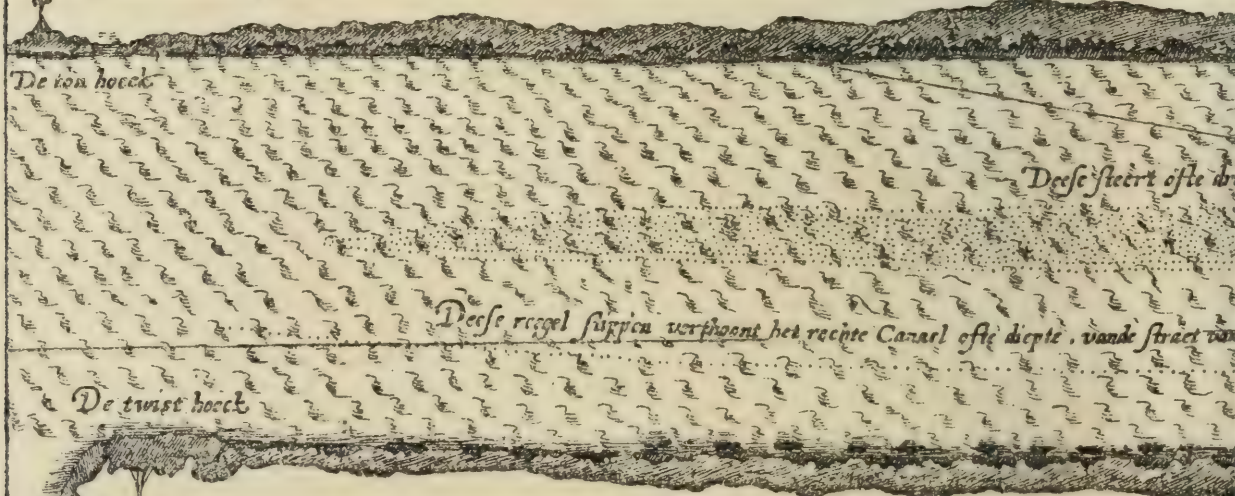 De ton hoeck
Deese steert ofte
Deese reegel stippen verthoont het rechte Canael ofte diepte, vande straet van
De twist hoeck